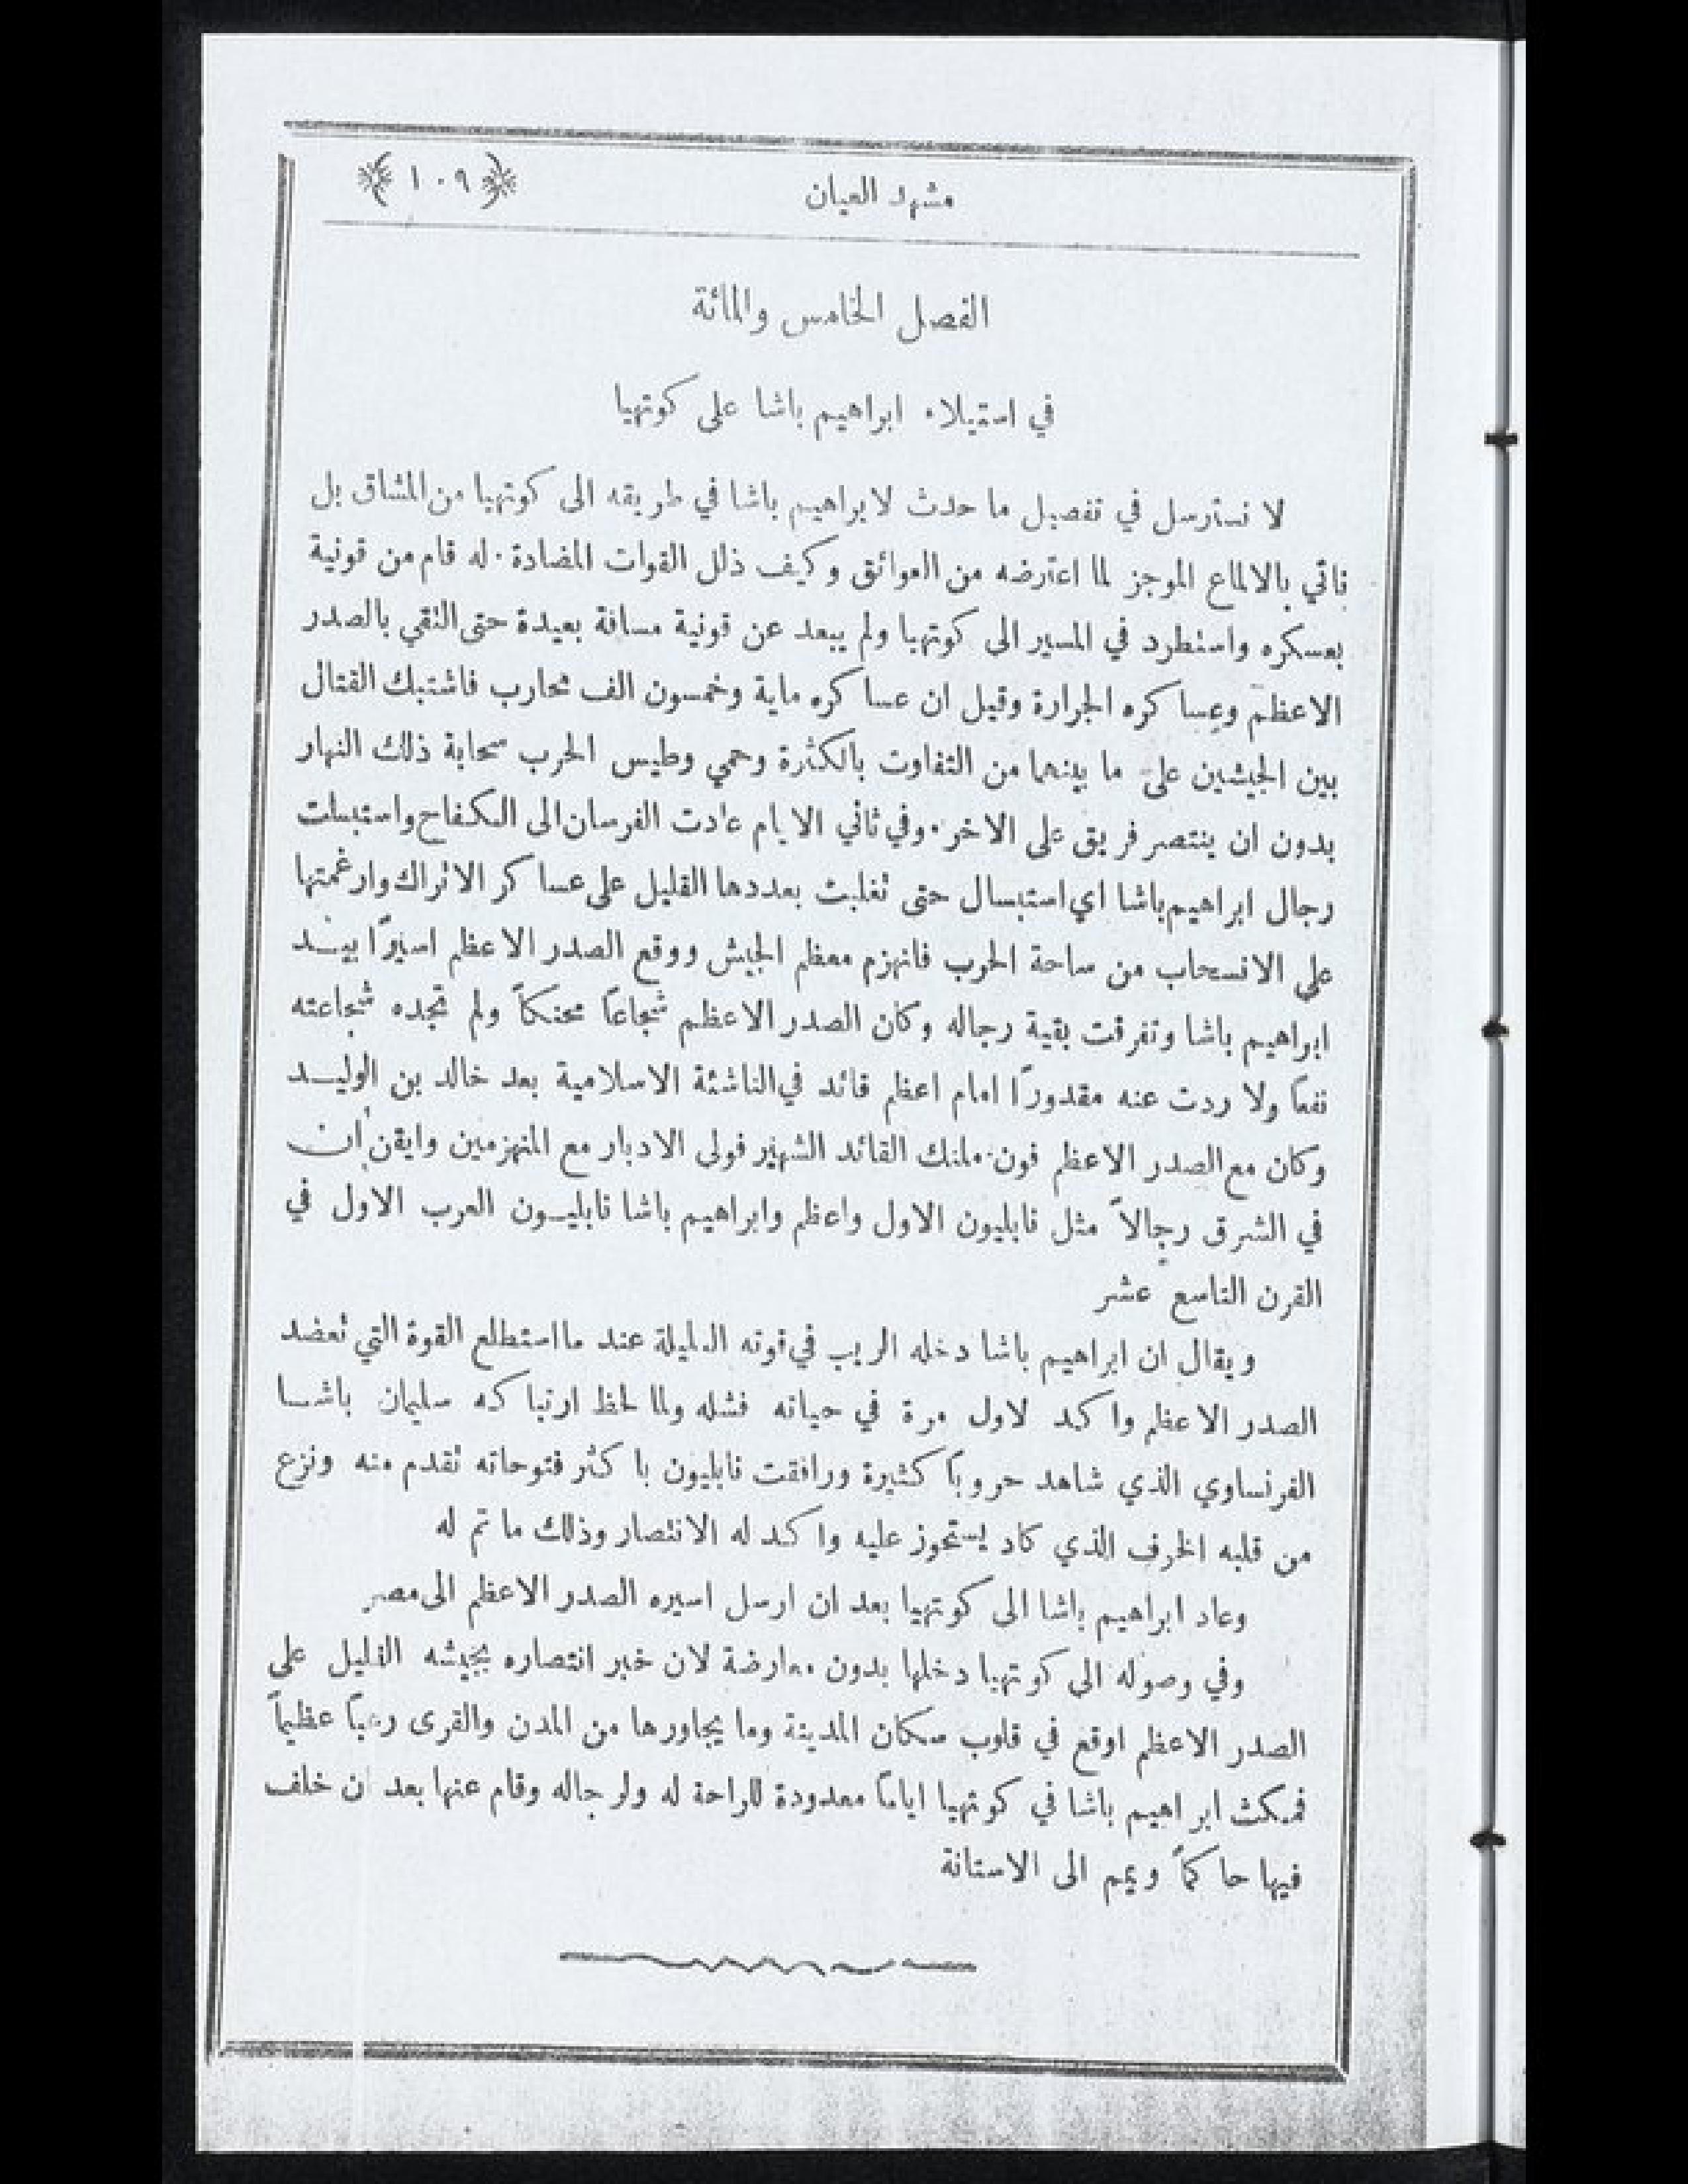 مشهد العيان
﴿ ١٠٩ ﴾
الفصل الخامس والمائة
في استيلاء ابراهيم باشا على كوتهيا
لا نسترسل في تفصيل ما حدث لابراهيم باشا في طريقه الى كوتهيا من المشاق بل
ناتي بالالماع الموجز لما اعترضه من العوائق وكيف ذلل القوات المضادة له قام من قونية
بعسكره واستطرد في المسير الى كوتهيا ولم يبعد عن قونية مسافة بعيدة حتى التقي بالصدر
الاعظم وعساكره الجرارة وقيل ان عساكره ماية وخمسون الف محارب فاشتبك القتال
بين الجيشين على ما بينهما من التفاوت بالكثرة وحمي وطيس الحرب سحابة ذلك النهار
بدون ان ينتصر فريق على الاخر. وفي ثاني الايام عادت الفرسان الى الكفاح واستبسلت
رجال ابراهيم باشا اي استبسال حتى تغلبت بعددها القليل على عساكر الاتراك وارغمتها
على الانسحاب من ساحة الحرب فانهزم معظم الجيش ووقع الصدر الاعظم اسيرًا بيد
ابراهيم باشا وتفرقت بقية رجاله وكان الصدر الاعظم شجاعًا محنكًا ولم تجده شجاعته
نفعًا ولا ردت عنه مقدورًا امام اعظم قائد في الناشئة الاسلامية بعد خالد بن الوليد
وكان مع الصدر الاعظم فون ملتك القائد الشهير فولى الادبار مع المنهزمين وايقن ان
في الشرق رجالاً مثل نابليون الاول واعظم وابراهيم باشا نابليون العرب الاول في
القرن التاسع عشر
ويقال ان ابراهيم باشا دخله الريب في قوته القليلة عند ما استطلع القوة التي تعضد
الصدر الاعظم واكد لاول مرة في حياته فشله ولما لحظ ارتباكه سليمان باشا
الفرنساوي الذي شاهد حروبًا كثيرة ورافقت نابليون باكثر فتوحاته تقدم منه ونزع
من قلبه الخوف الذي كاد يستحوز عليه واكد له الانتصار وذلك ما تم له
وعاد ابراهيم باشا الى كوتهيا بعد ان ارسل اسيره الصدر الاعظم الى مصر
وفي وصوله الى كوتهيا دخلها بدون معارضة لان خبر انتصاره بجيشه القليل على
الصدر الاعظم اوقع في قلوب سكان المدينة وما يجاورها من المدن والقرى رعبًا عظيمًا
فمكث ابراهيم باشا في كوتهيا ايامًا معدودة للراحة له ولرجاله وقام عنها بعد ان خلف
فيها حاكمًا ويمم الى الاستانة